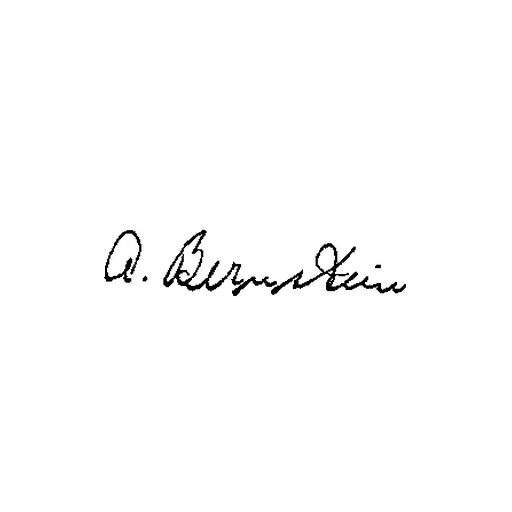 A. Bernstein